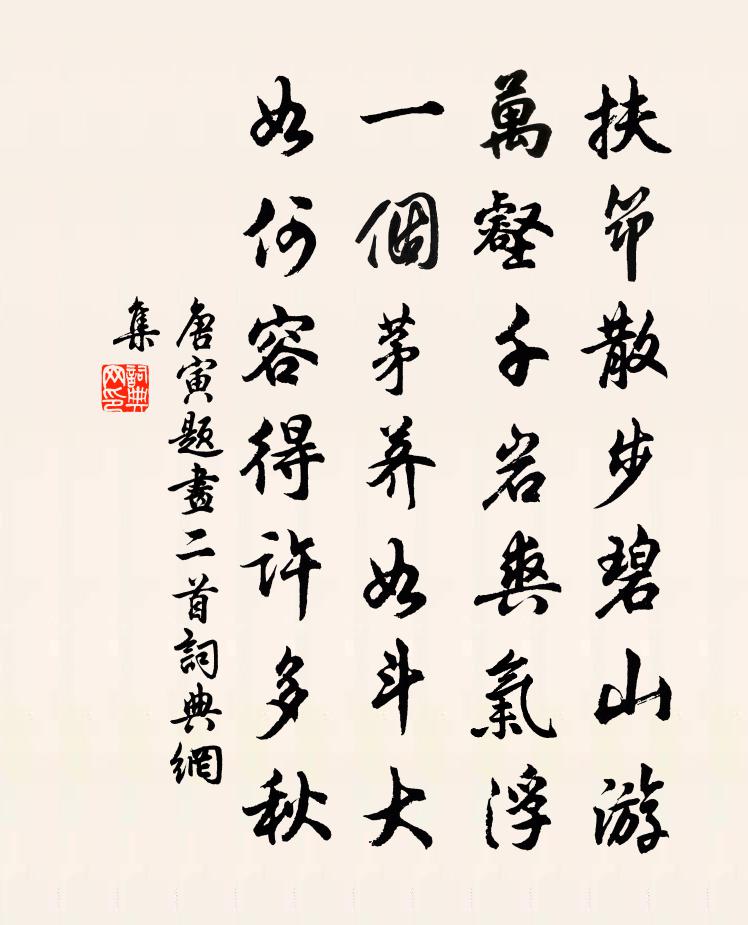 扶筇散步碧山游
萬壑千岩爽氣浮
一個茅荞如斗大
如何容得許多秋
唐寅題畫二首詞典網
集
詞典网印